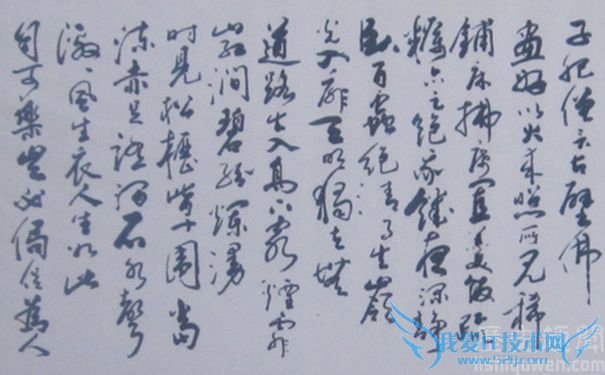 子肥僧言古壁佛
畫好以火来照所見稀
鋪床拂席置羹飯疏
糲亦足飽我饑夜深静
臥百蟲絶清月出嶺
光入扉天明獨去無
道路出入高下窮煙霏
山紅澗碧紛爛漫
時見松櫪皆十圍當
流赤足蹋澗石水聲
激々風生衣人生如此
自可樂豈必局促為人
我爱IT技术网
lishiquwen.com